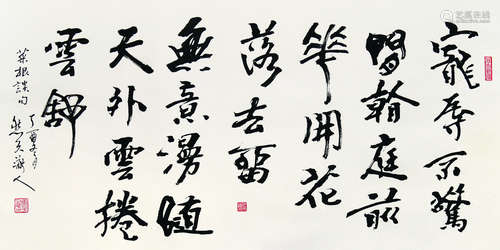 寵辱不驚
閒看庭前
華開花
落去留
無意漫隨
天外雲捲
雲舒
菜根談句
丁酉冬月
人